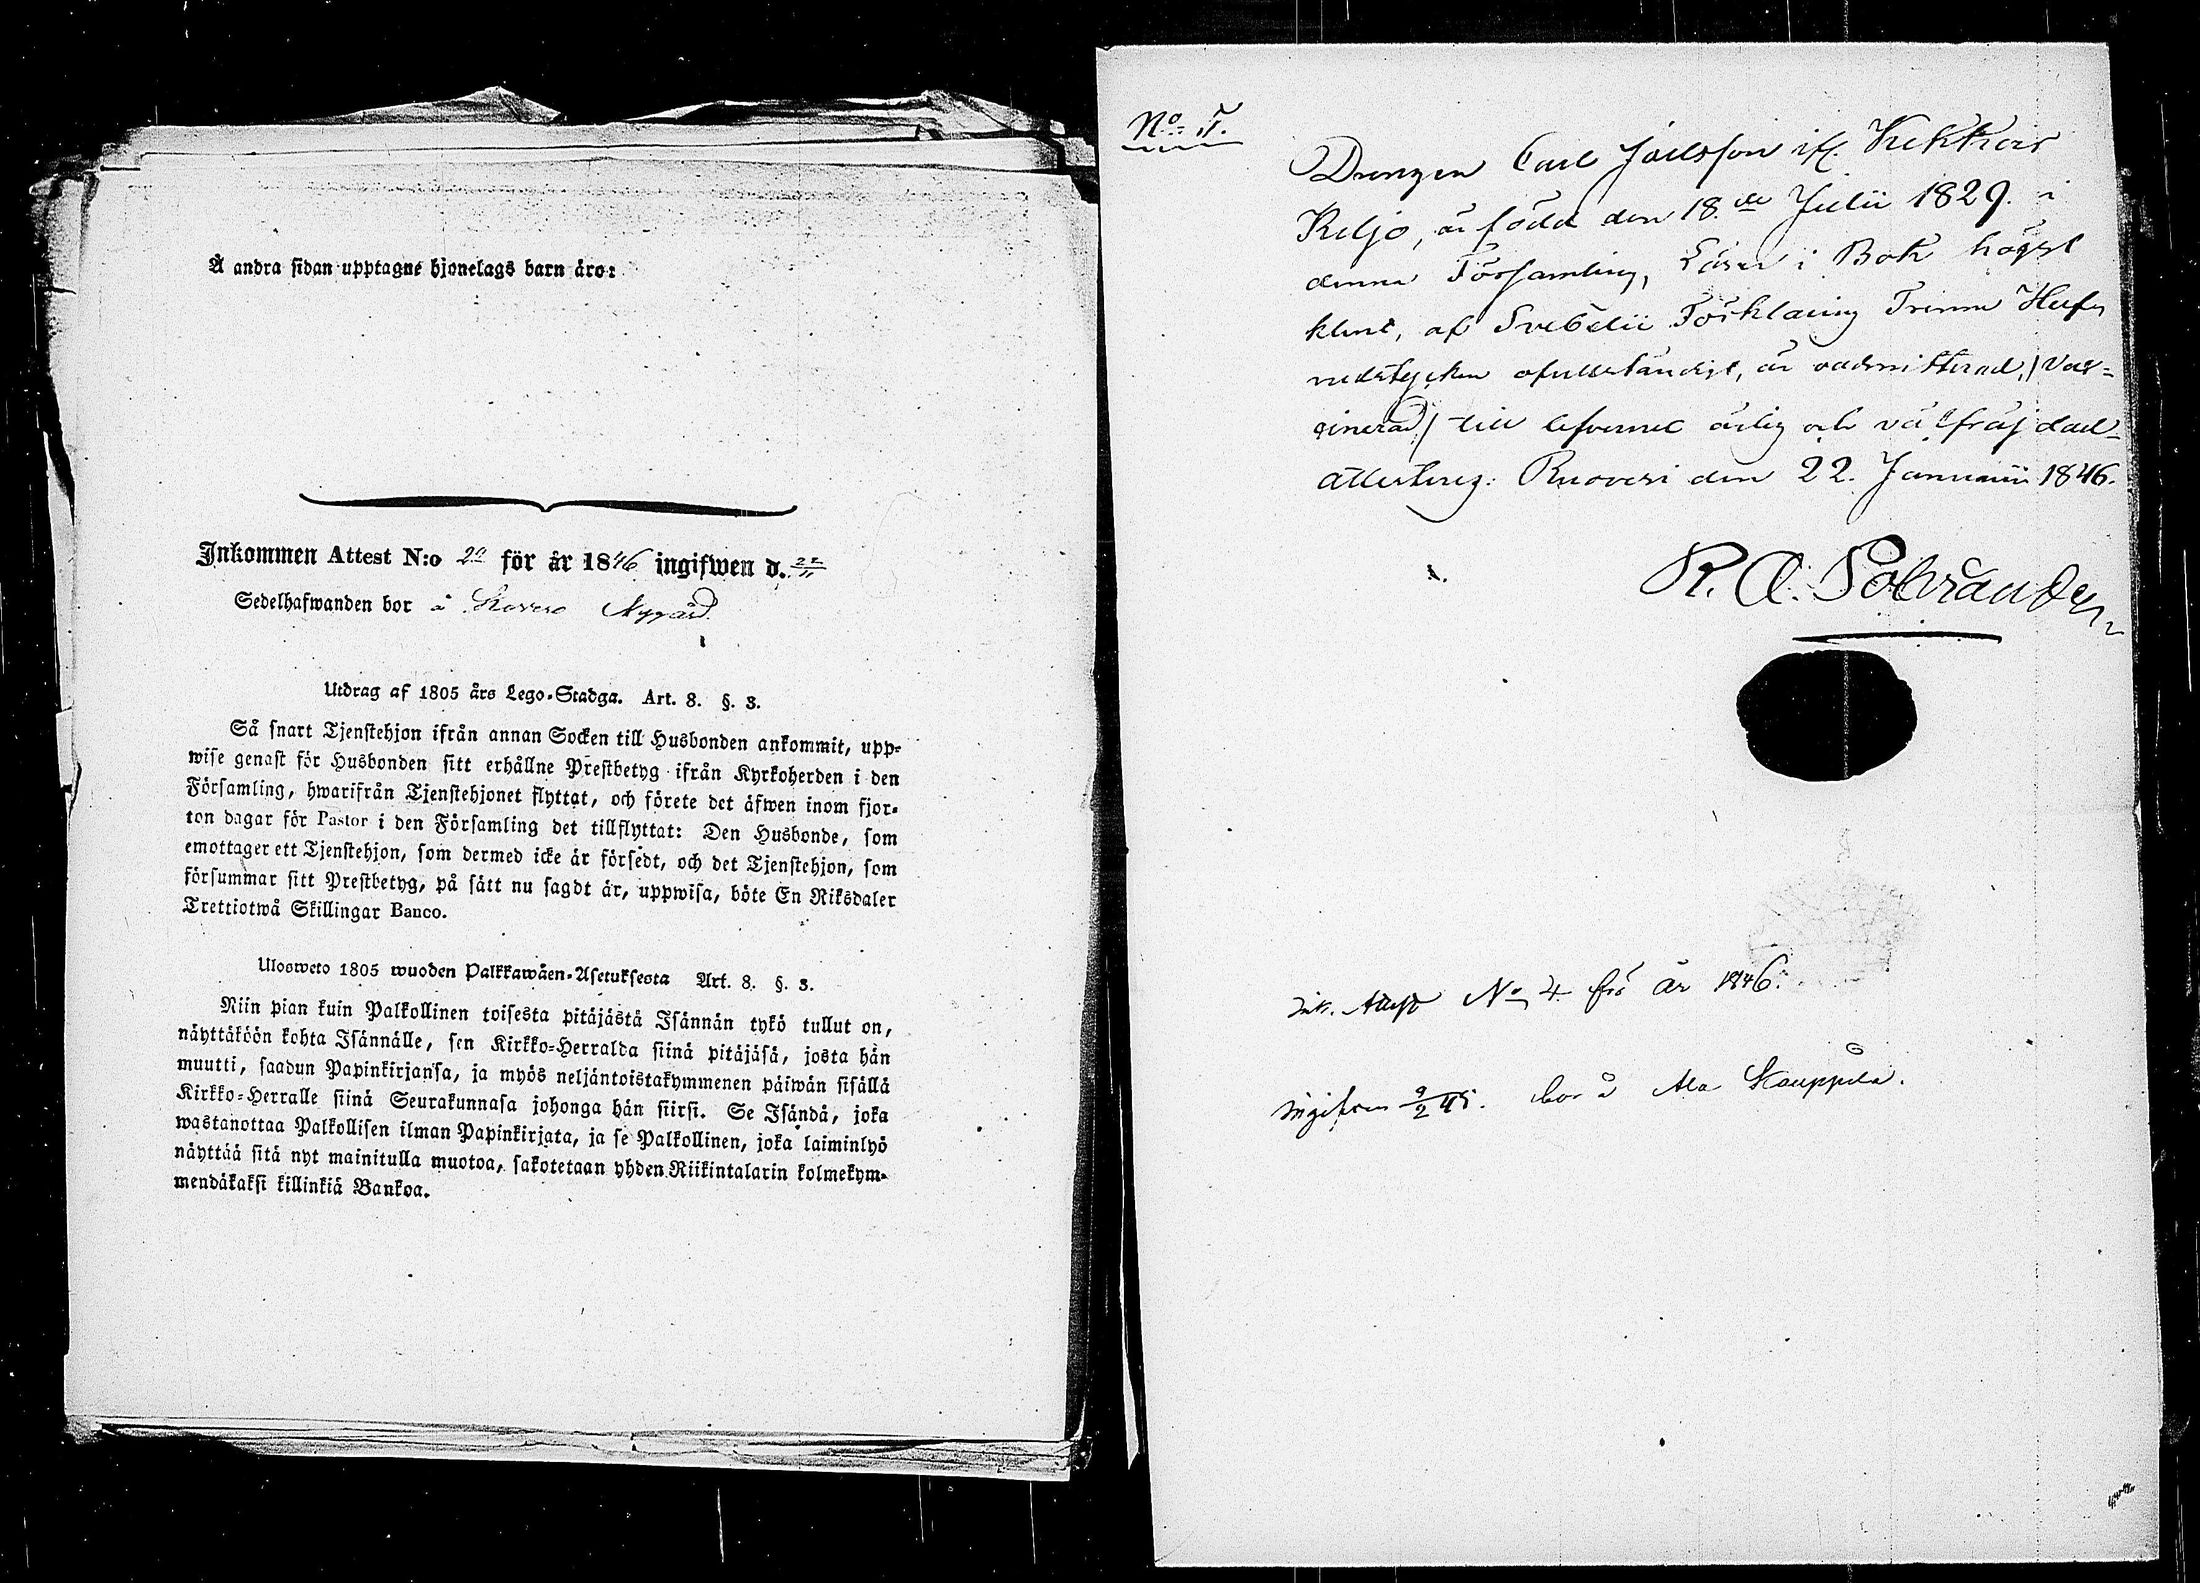 Å andra sidan upptagne hjonelags barn äro:
Inkommen Attest N:o 20 för år 1846 ingifwen d. 22/11
Sedelhafwanden bor å Nygård.
Utdrag af 1805 års Lego-Stadga. Art. 8. §. 3.
Så snart Tjenstehjon ifrån annan Socken till Husbonden ankommit, upp-
wise genast för Husbonden sitt erhållne Prestbetyg ifrån Kyrkoherden i den
Församling, hwarifrån Tjenstehjonet flyttat, och förete det äfwen inom fjor-
ton dagar för Pastor i den Församling det tillflyttat: Den Husbonde, som
emottager ett Tjenstehjon, som dermed icke är försedt, och det Tjenstehjon, som
försummar sitt Prestbetyg, på sätt nu sagdt är, uppwisa, böte En Riksdaler
Trettiotwå Skillingar Banco.
Ulosweto 1805 wuoden Palkkawäen-Asetuksesta Art. 8. §. 3.
Niin pian kuin Palkollinen toisesta pitäjästä Isännän tykö tullut on,
näyttäköön kohta Isännälle, sen Kirkko-Herralda siinä pitäjäsä, josta hän
muutti, saadun Papinkirjansa, ja myös neljäntoistakymmenen päiwän sisällä
Kirkko-Herralle siinä Seurakunnasa johonga hän siirsi. Se Isändä, joka
wastanottaa Palkollisen ilman Papinkirjata, ja se Palkollinen, joka laiminlyö
näyttää sitä nyt mainitulla muotoa, sakotetaan yhden Riikintalarin kolmekym-
mendäkaksi killinkiä Bankoa.
No 5.
Drengen Carl Joelsson ifr. Kekkois
Keljo, är född den 18.de Julii 1829. i
denna Församling, Läser i Bok högst
klent, af Svebelii Förklaring Trenne Hufvu
vudstycken ofullständigt, är oadmitterad, / Vac-
cinerad / till lefvernet ärlig och välfräjdad
attesteras. Ruovesi den 22. Januarii 1846.
Ink. Attest No 4 för år 1846.
Ingifven 9/2 45. bor å Ala Kauppila.